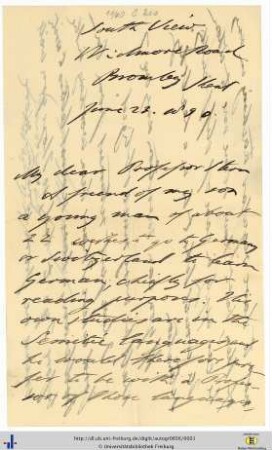 South View
Widmore Road
Bromley Kent
June 23. 1890.
My dear Professor
A friend of my son
a young man of about
22 wants to go to Germany
or Switzerland to learn
German, chiefly for
reading purposes. His
own studies are in the
Semitic languages and
he would therefore
to be with a
of those languages
http://dl.ub.uni-freiburg.de/diglit/autogr0806/0001
© Universitätsbibliothek Freiburg